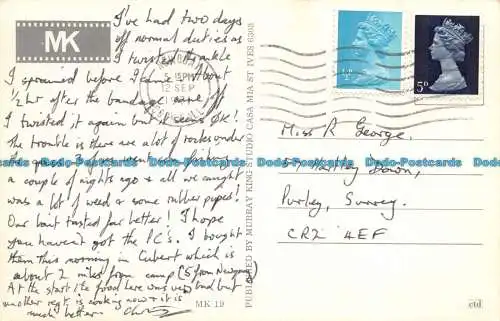 MK
I've had two days
off normal duties as
I twisted the ankle
I sprained before I came. About
1/2 hr after the bandage came off
I twisted it again but it seems OK!
The trouble is there are a lot of rocks under
the grass
a couple of nights ago & all we caught
was a lot of weed & some rubber pipes!
Our bait tasted far better! I hope
you haven't got the P.C's. I bought
them this morning in Cubert which is
about 2 miles from camp (5 from Newquay)
At the start the food here was very bad but
another regt is cooking now & it is
much better.
5 15PM
12 SEP
PUBLISHED BY MURRAY KING STUDIO CASA MIA ST IVES 6303
MK 19
1/2D
5D
Miss R George.
Hartley Down,
Purley, Surrey.
CR2 4EF
ctd.
Dodo-Postcards Dodo-Postcards Dodo-Postcards Dodo-Postcards